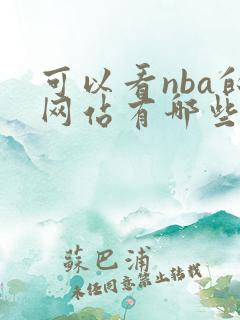 可以看nba的
网站有哪些
蘇巴浦
未经同意禁止转载